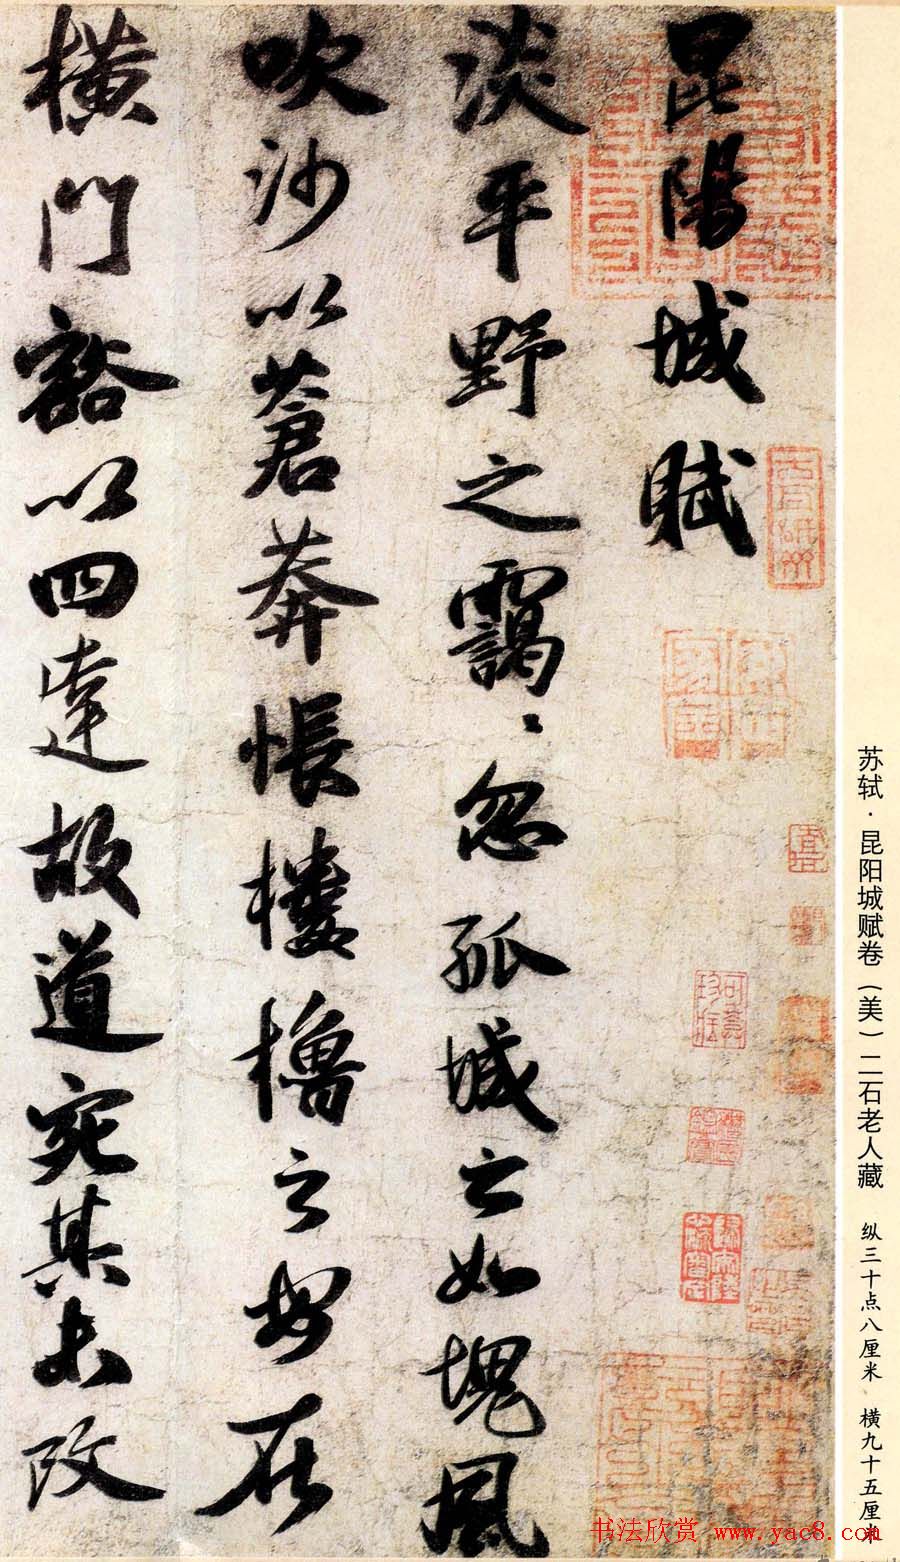 苏轼·昆阳城赋卷（美）二石老人藏 纵三十点八厘米 横九十五厘米
昆陽城賦
淡平野之靄〻忽孤城之如塊風
吹沙以蒼莽悵樓櫓之安在
橫門豁以四達故道宛其未改
书法欣赏 www.yac8.com